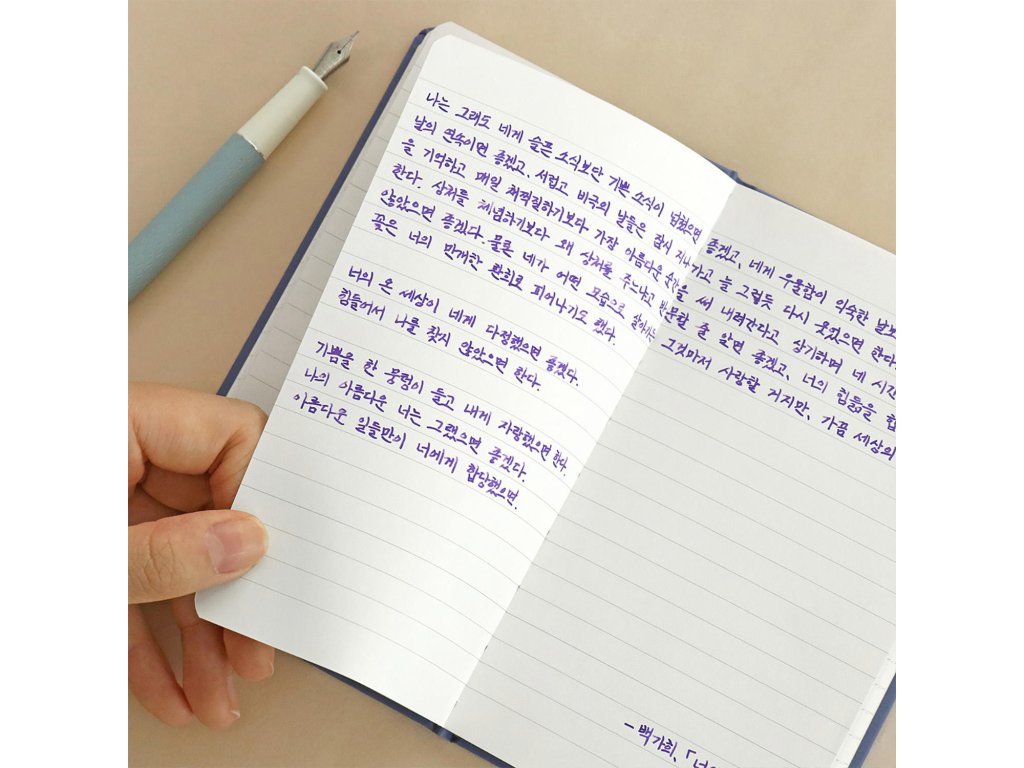 나는 그래도 네게 슬픈 소식보단 기쁜 소식이 넘쳤으면 좋겠고, 네게 우울함이 익숙한 날보
날의 연속이면 좋겠고, 서럽고 비극의 날들은 잠시 지나가고 늘 그렇듯 다시 웃었으면 한다.
을 기억하고 매일 채찍질하기보다 가장 아름다운 순간을 써 내려간다고 상기하며 네 시간
한다. 상처를 체념하기보다 왜 상처를 주느냐고 반문할 줄 알면 좋겠고, 너의 힘듦을 합
않았으면 좋겠다. 물론 네가 어떤 모습으로 그것마저 사랑할 거지만, 가끔 세상의
꽃은 너의 만개한 환희로 피어나기도 했다.
너의 온 세상이 네게 다정했으면 좋겠다.
힘들어서 나를 찾지 않았으면 한다.
기쁨을 한 뭉텅이 들고 내게 자랑했으면 한다.
나의 아름다운 너는 그랬으면 좋겠다.
아름다운 일들만이 너에게 합당했으면.
- 백가희, 「너의